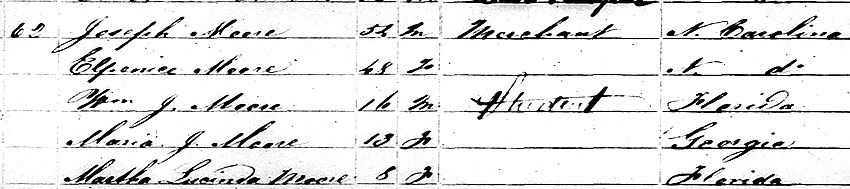 62 Joseph Moore 52 M Merchant N. Carolina
Elpenice Moore 48 F N. do
Wm J. Moore 16 M Student Florida
Maria J. Moore 13 F Georgia
Martha Lucinda Moore 8 F Florida